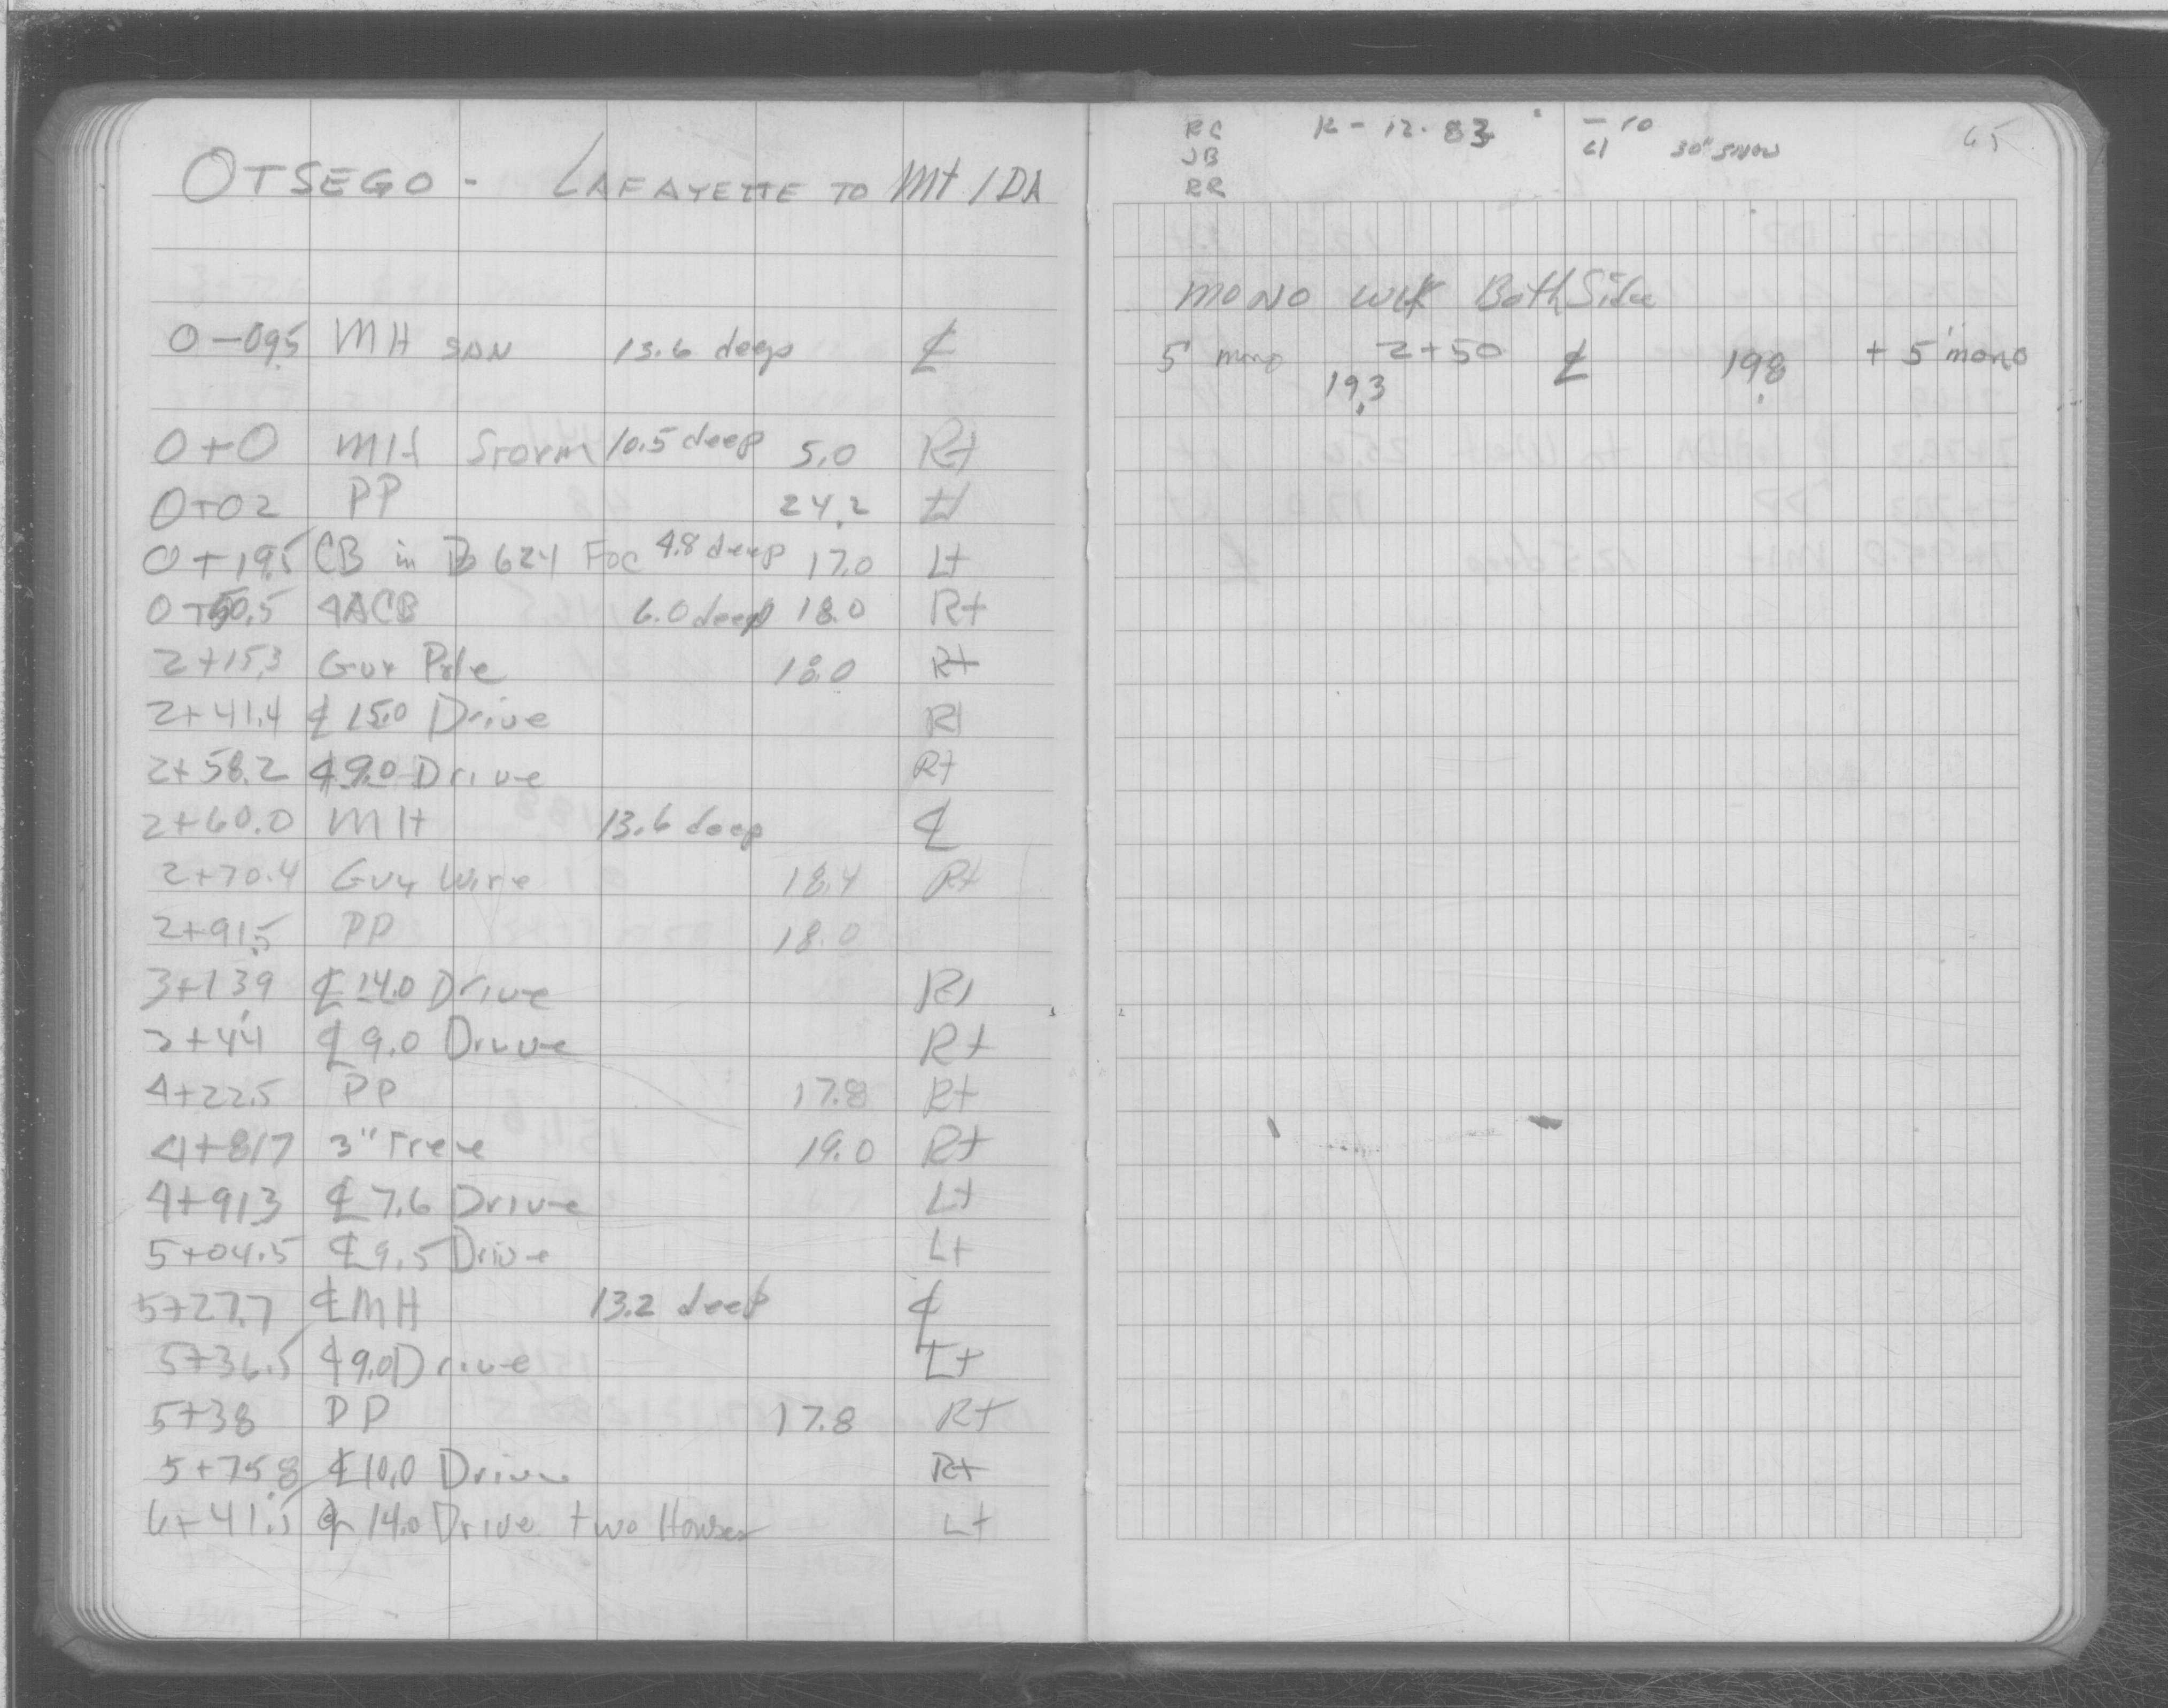 OTSEGO - LAFAYETTE TO Mt IDA
0-09.5 MH SAN 13.6 deep ℄
0+0 MH Storm 10.5 deep 5.0 Rt
0+02 PP 24.2 Lt
0+19.5 CB in B624 Foc 4.8 deep 17.0 Lt
0+50.5 4ACB 6.0 deep 18.0 Rt
2+15.3 Guy Pole 18.0 Rt
2+41.4 ℄ 15.0 Drive Rt
2+58.2 ℄ 9.0 Drive Rt
2+60.0 MH 13.6 deep ℄
2+70.4 Guy Wire 18.4 Rt
2+91.5 PP 18.0
3+13.9 ℄ 14.0 Drive Rt
3+44 ℄ 9.0 Drive Rt
4+22.5 PP 17.8 Rt
4+81.7 3" Tree 19.0 Rt
4+91.3 ℄ 7.6 Drive Lt
5+04.5 ℄ 9.5 Drive Lt
5+27.7 ℄ MH 13.2 deep ℄
5+36.5 ℄ 9.0 Drive Lt
5+38 PP 17.8 Rt
5+75.8 ℄ 10.0 Drive Rt
6+41.5 ℄ 14.0 Drive two Houses Lt
RG 12-12-83 -10 65
JB 30" SNOW
RR
MONO WLK Both Side
5' mono 2+50 ℄ 19.8 + 5' mono
19.3